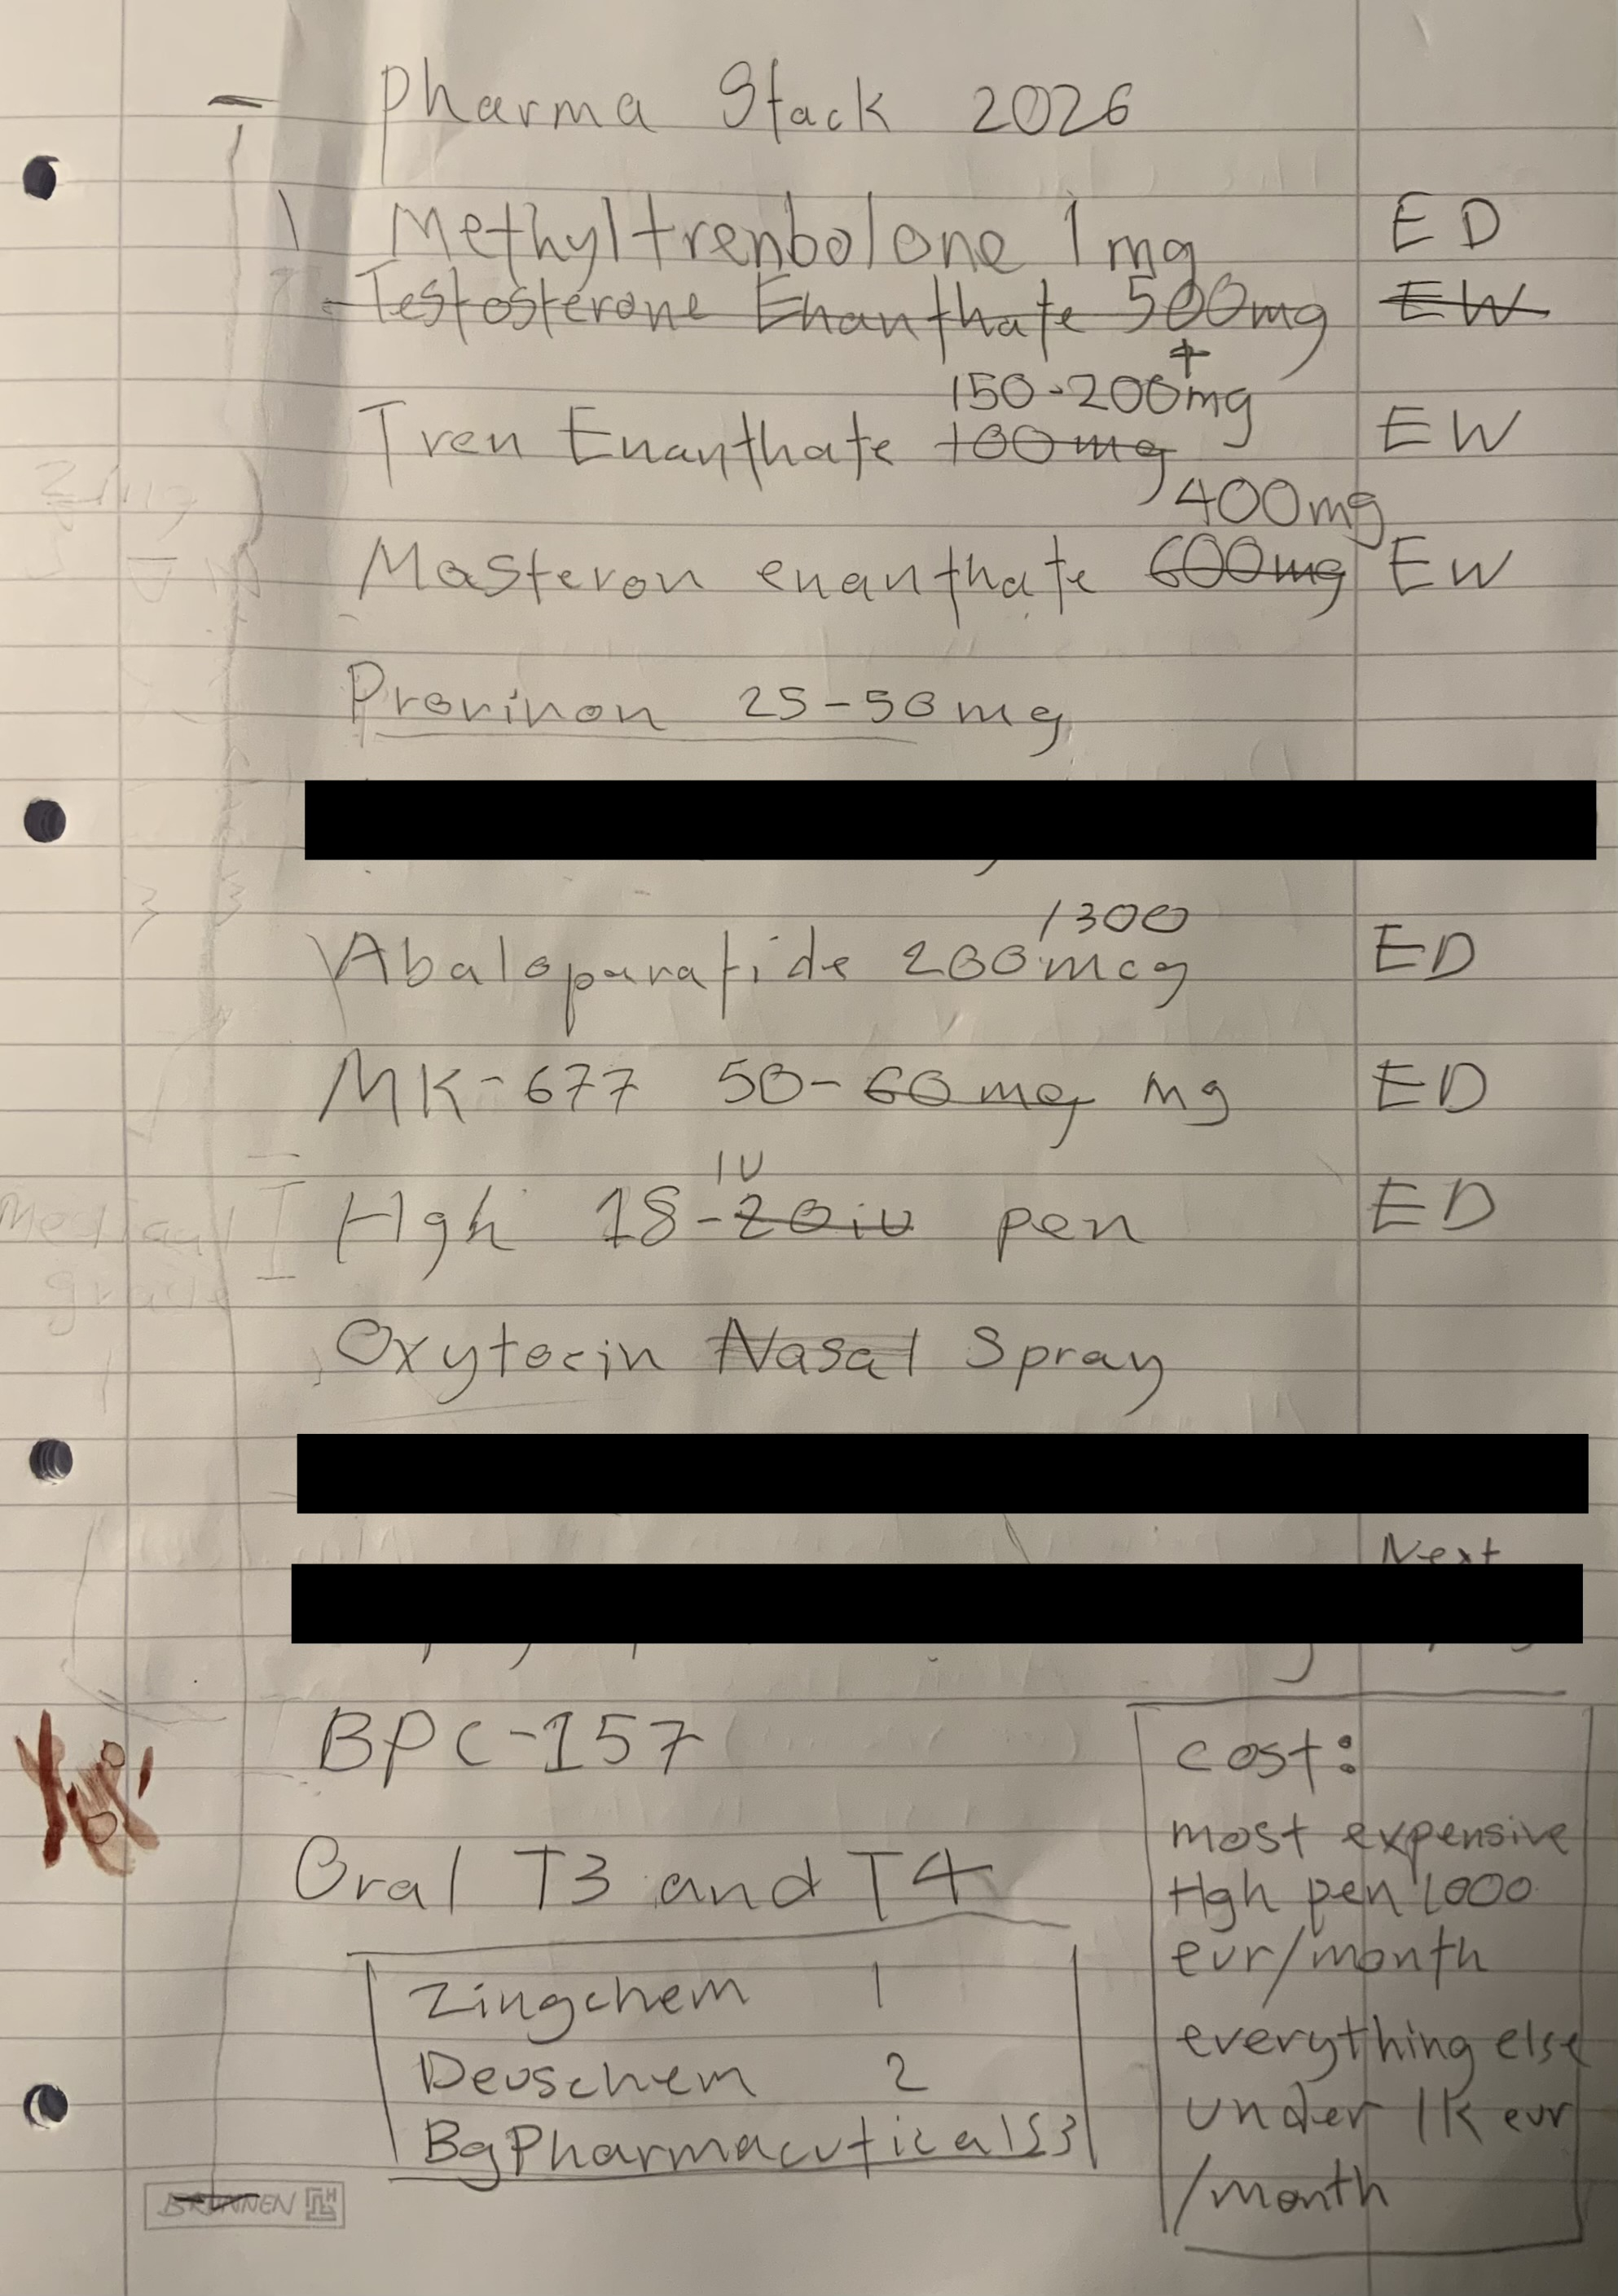 Pharma Stack 2026
Methyltrenbolone 1mg ED
Testosterone Enanthate 500mg EW
+
150-200mg
Tren Enanthate 100mg EW
400mg
Masteron enanthate 600mg EW
Provinon 25-50mg
/300
Abaloparatide 200mcg ED
MK-677 50-60mg mg ED
IU
Hgh 18-20iu pen ED
Medical
grade
Oxytocin Nasal Spray
Next
BPC-157
Oral T3 and T4
Zingchem 1
Deuschem 2
BgPharmacuticals 3
cost:
most expensive
Hgh pen 1000
eur/month
everything else
under 1k eur
/month
BRUNNEN